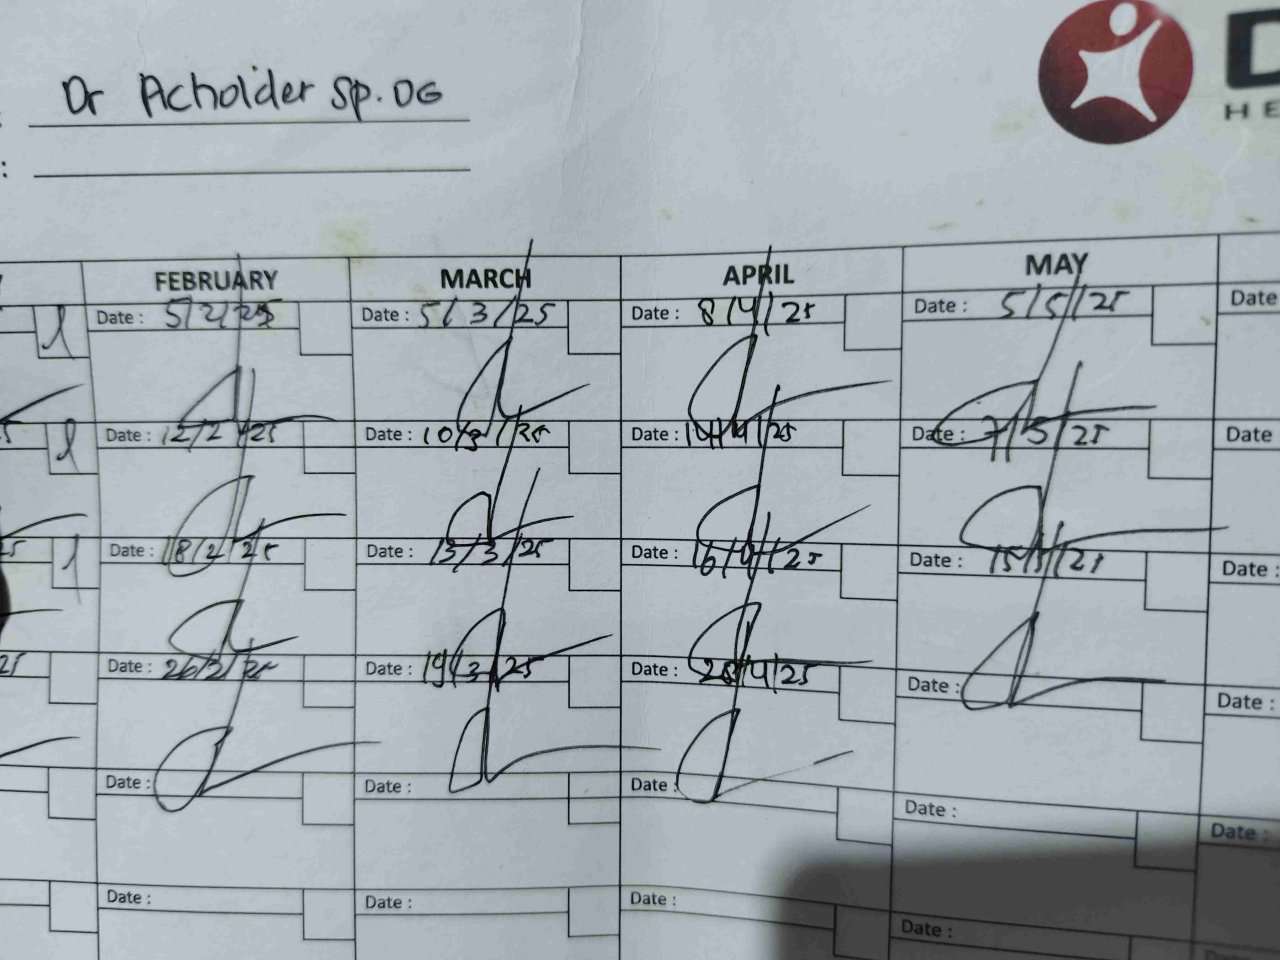 Dr Acholder Sp.OG
D
HE
:
FEBRUARY MARCH APRIL MAY
Date : 5/2/25 Date : 5/3/25 Date : 8/4/25 Date : 5/5/25 Date
Date : 12/2/25 Date : 10/3/25 Date : 14/4/25 Date : 7/5/25 Date
Date : 18/2/25 Date : 13/3/25 Date : 16/4/25 Date : 15/5/25 Date :
25 Date : 26/2/25 Date : 19/3/25 Date : 28/4/25 Date : Date :
Date : Date : Date : Date : Date :
Date : Date : Date : Date :